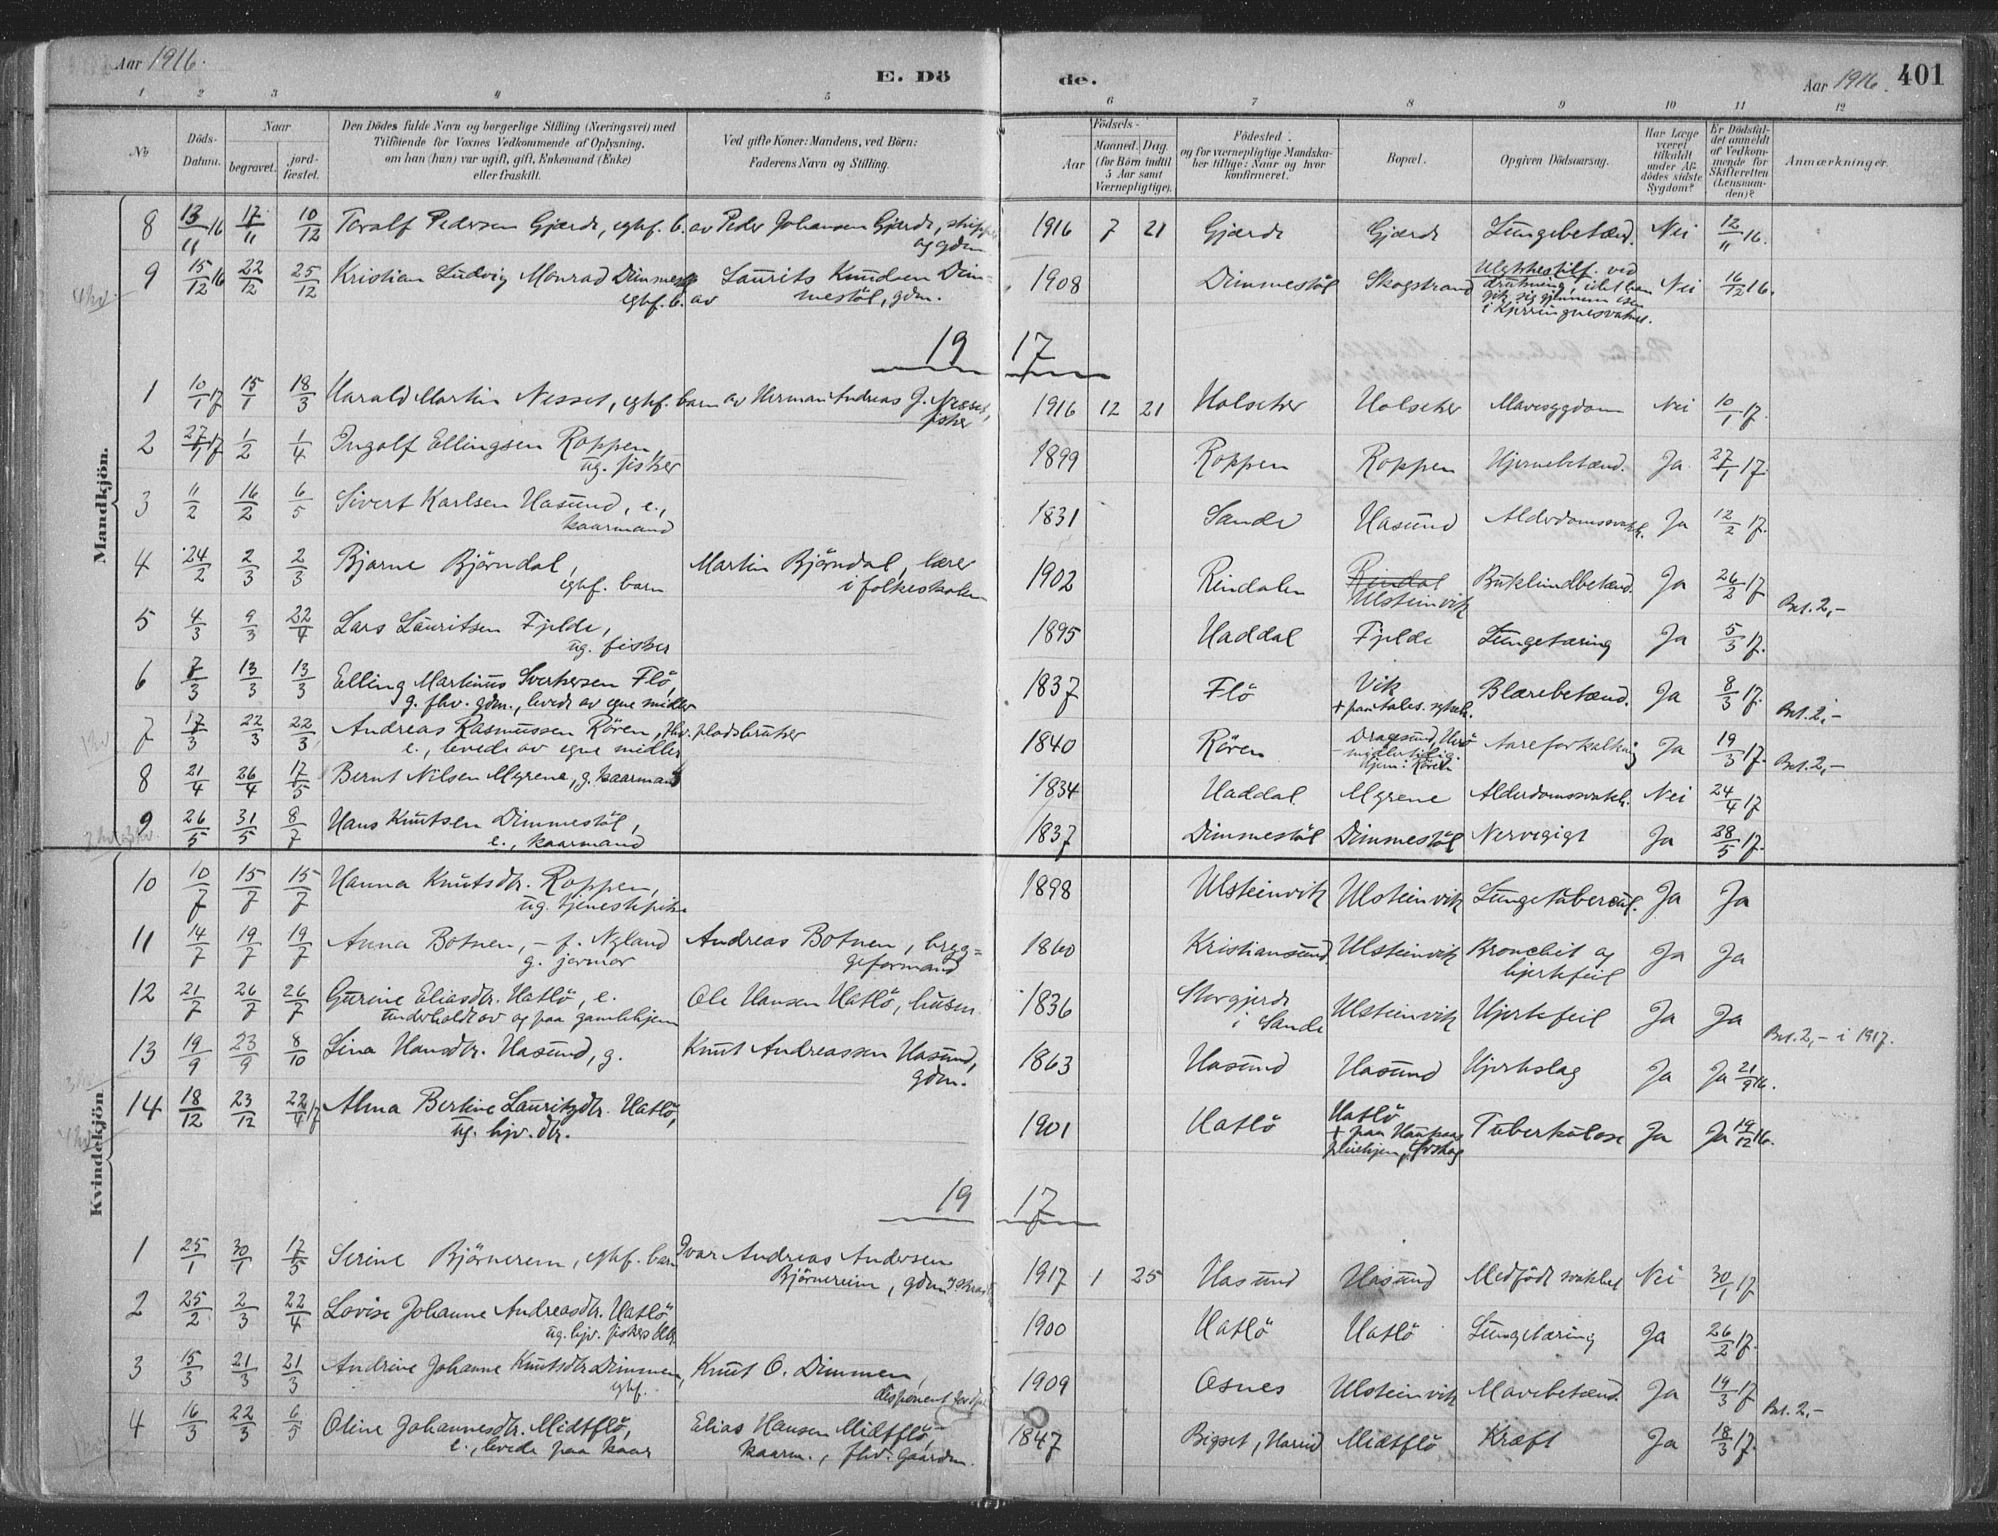 Aar 1916.
E. Dö
de.
Aar 1916.
401
1 2 3 4 5 6 7 8 9 10 11 12
No
Döds-Datum.
Naar
begravet.
jord-fæstet.
Den Dödes fulde Navn og borgerlige Stilling (Næringsvei) med
Tilföiende for Voxnes Vedkommende af Oplysning,
om han (hun) var ugift, gift, Enkemand (Enke)
eller fraskilt.
Ved gifte Koner: Mandens, ved Börn:
Faderens Navn og Stilling.
Födsels-
Aar
Maaned. Dag.
(for Börn indtil
5 Aar samt
Værnepligtige).
Födested
og for værnepligtige Mandska-
ber tillige: Naar og hvor
konfirmeret.
Bopæl.
Opgiven Dödsaarsag.
Har Læge
været
tilkaldt
under Af-
dödes sidste
Sygdom?
Er Dödsfal-
det anmeldt
af Vedkom-
mende for
Skifteretten
(Lensmand-
den)?
Anmærkninger.
Mandkjön.
8 13/11 16 17/11 10/12 Toralf Pedersen Gjærde, egtf. b. av Peder Johansen Gjerde, skipper
og gdm. 1916 7 21 Gjærde Gjærde Lungebetænd. Nei 12/11 16.
9 15/12 16 22/12 25/12 Kristian Ludvig Monrad Dimmestöl Laurits Knudsen Dim-
egtf. b. av mestöl, gdm. 1908 Dimmestöl Skogstrand Ulykkestilf. ved
drukning, idet han
gik sig gjennem isen
i Kjerringnesvatnet. Nei 16/12 16.
19 17
1 10/1 17 15/1 18/3 Harald Martin Nesset, egtf. barn av Herman Andreas J. Nesset,
fisker 1916 12 21 Holseker Holseker Mavesygdom Nei 10/1 17.
2 27/1 17 1/2 1/4 Ingolf Ellingsen Roppen,
ug. fisker 1899 Roppen Roppen Hjernebetænd. Ja 27/1 17.
3 11/2 16/2 6/5 Sivert Karlsen Hasund, e.,
kaarmand 1831 Sande Hasund Alderdomssvakh. Ja 12/2 17.
4 24/2 2/3 2/3 Bjarne Björndal,
egtf. barn Martin Björndal, lærer
i folkeskolen 1902 Rindalen Rindal
Ulsteinvik Bukhindbetænd. Ja 26/2 17. Bet. 2,-
5 4/3 9/3 22/4 Lars Lauritsen Fjelde,
ug. fisker 1895 Haddal Fjelde Lungetæring Ja 5/3 17.
6 7/3 13/3 13/3 Elling Martinus Sverkersen Flö,
g. fhv. gdm., levede av egne midler 1837 Flö Vik
+ paa Aales. sykeh. Blærebetænd. Ja 8/3 17. Bet. 2,-
7 17/3 22/3 22/3 Andreas Rasmussen Rören, fhv. pladsbruker
e., levede av egne midler 1840 Rören Dragesund, Herö
midlertidig
hjem: Rören Aareforkalkning Ja 19/3 17. Bet. 2,-
8 21/4 26/4 17/5 Bernt Nilsen Myrene, g. kaarmand 1834 Haddal Myrene Alderdomssvakh. Nei 24/4 17.
9 26/5 31/5 8/7 Hans Knutsen Dimmestöl,
e., kaarmand 1837 Dimmestöl Dimmestöl Nervegigt Ja 28/5 17.
Kvindekjön
10 10/7 15/7 15/7 Hanna Knutsdtr. Roppen,
ug. tjenestepike 1898 Ulsteinvik Ulsteinvik Lungetubercul. Ja Ja
11 14/7 19/7 19/7 Anna Botnen, - f. Nyland
g. jormor Andreas Botnen, bryg-
geformand 1860 Kristiansund Ulsteinvik Bronchit og
hjertefeil Ja Ja
12 21/7 26/7 26/7 Gurine Eliasdtr. Hatlö, e.
underholdt av og paa gamlehjem Ole Hansen Hatlö, husm. 1836 Storgjerde
i Sande Ulsteinvik Hjertefeil Ja Ja Bet. 2,- i 1917.
13 19/9 23/9 8/10 Lina Hansdtr. Hasund, g. Knut Andreassen Hasund,
gdm. 1863 Hasund Hasund Hjerteslag Ja Ja 21/9 16.
14 18/12 23/12 22/4 17 Alma Bertine Lauritzdtr. Hatlö,
ug. hjv. dtr. 1901 Hatlö Hatlö
+ paa
pleiehjem, Tuberkulose Ja Ja 19/12 16.
19 17
1 25/1 30/1 17/5 Serine Björnerem, egtf. barn Ivar Andreas Andersen
Björnereim, gdm 1917 1 25 Hasund Hasund Medfödt svakhet Nei 30/1 17
2 25/2 2/3 22/4 Lovise Johanne Andreasdtr. Hatlö
ug. hjv. fiskers dtr. 1900 Hatlö Hatlö Lungetæring Ja 26/2 17.
3 15/3 21/3 21/3 Andrine Johanne Knutsdtr. Dimmen,
egtf. Knut O. Dimmen,
disponent 1909 Osnes Ulsteinvik Mavebetænd. Ja 19/3 17 Bet. 2,-
4 16/3 22/3 6/5 Oline Johannesdtr. Midtflö,
e., levede paa kaar Elias Hansen Midtflö,
kaarm., fhv. gaardm. 1847 Bigset, Hareid Midtflö Kræft Ja 18/3 17.